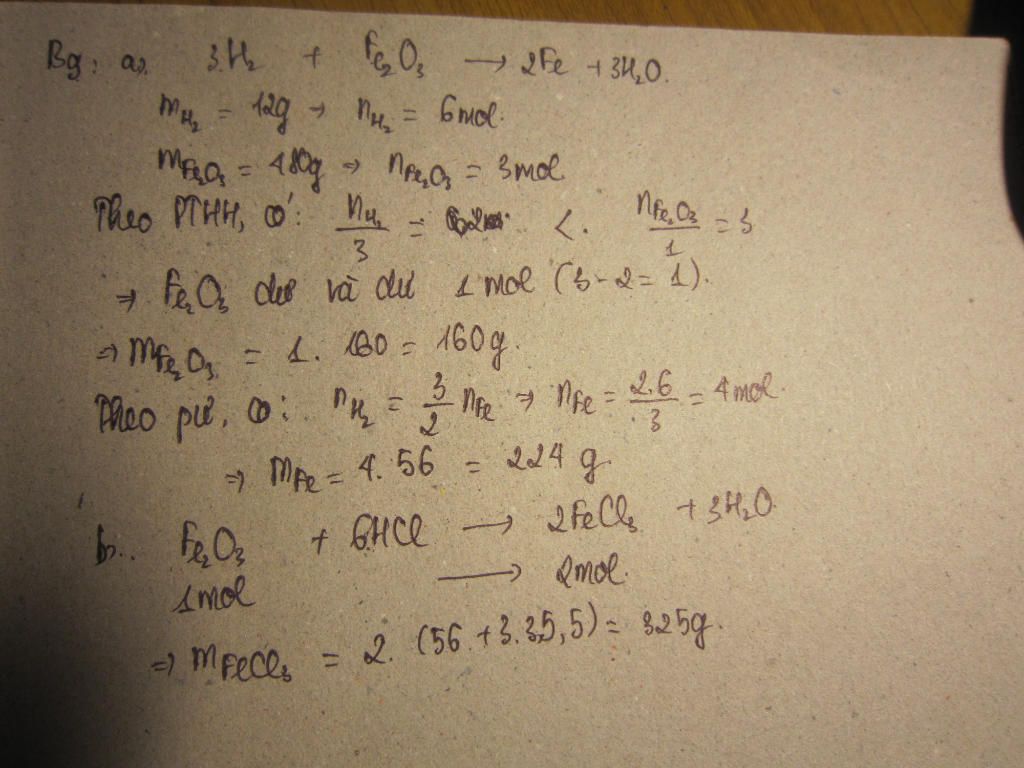 Bg: a, 3H₂ + Fe₂O₃ → 2Fe + 3H₂O.
m_H₂ = 12g → n_H₂ = 6mol.
m_Fe₂O₃ = 480g → n_Fe₂O₃ = 3mol
Theo PTHH, có: n_H₂/3 = < n_Fe₂O₃/1 = 3
⇒ Fe₂O₃ dư và dư 1 mol (3-2=1).
⇒ m_Fe₂O₃ = 1. 160 = 160g.
Theo pư, có: n_H₂ = 3/2 n_Fe ⇒ n_Fe = 2.6/3 = 4mol.
⇒ m_Fe = 4.56 = 224 g.
b.. Fe₂O₃ + 6HCl → 2FeCl₃ + 3H₂O.
1mol → 2mol.
⇒ m_FeCl₃ = 2. (56 + 3.35,5) = 325g.